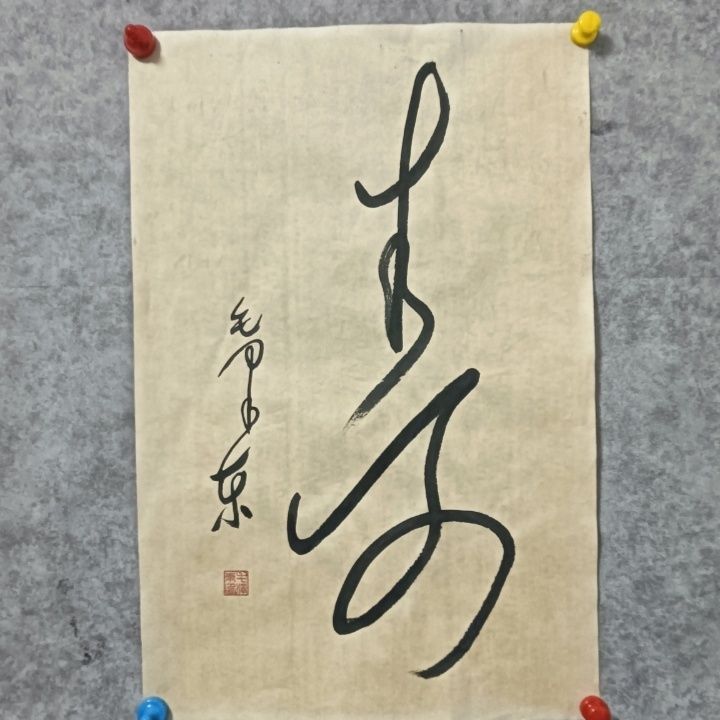 寿
毛泽东